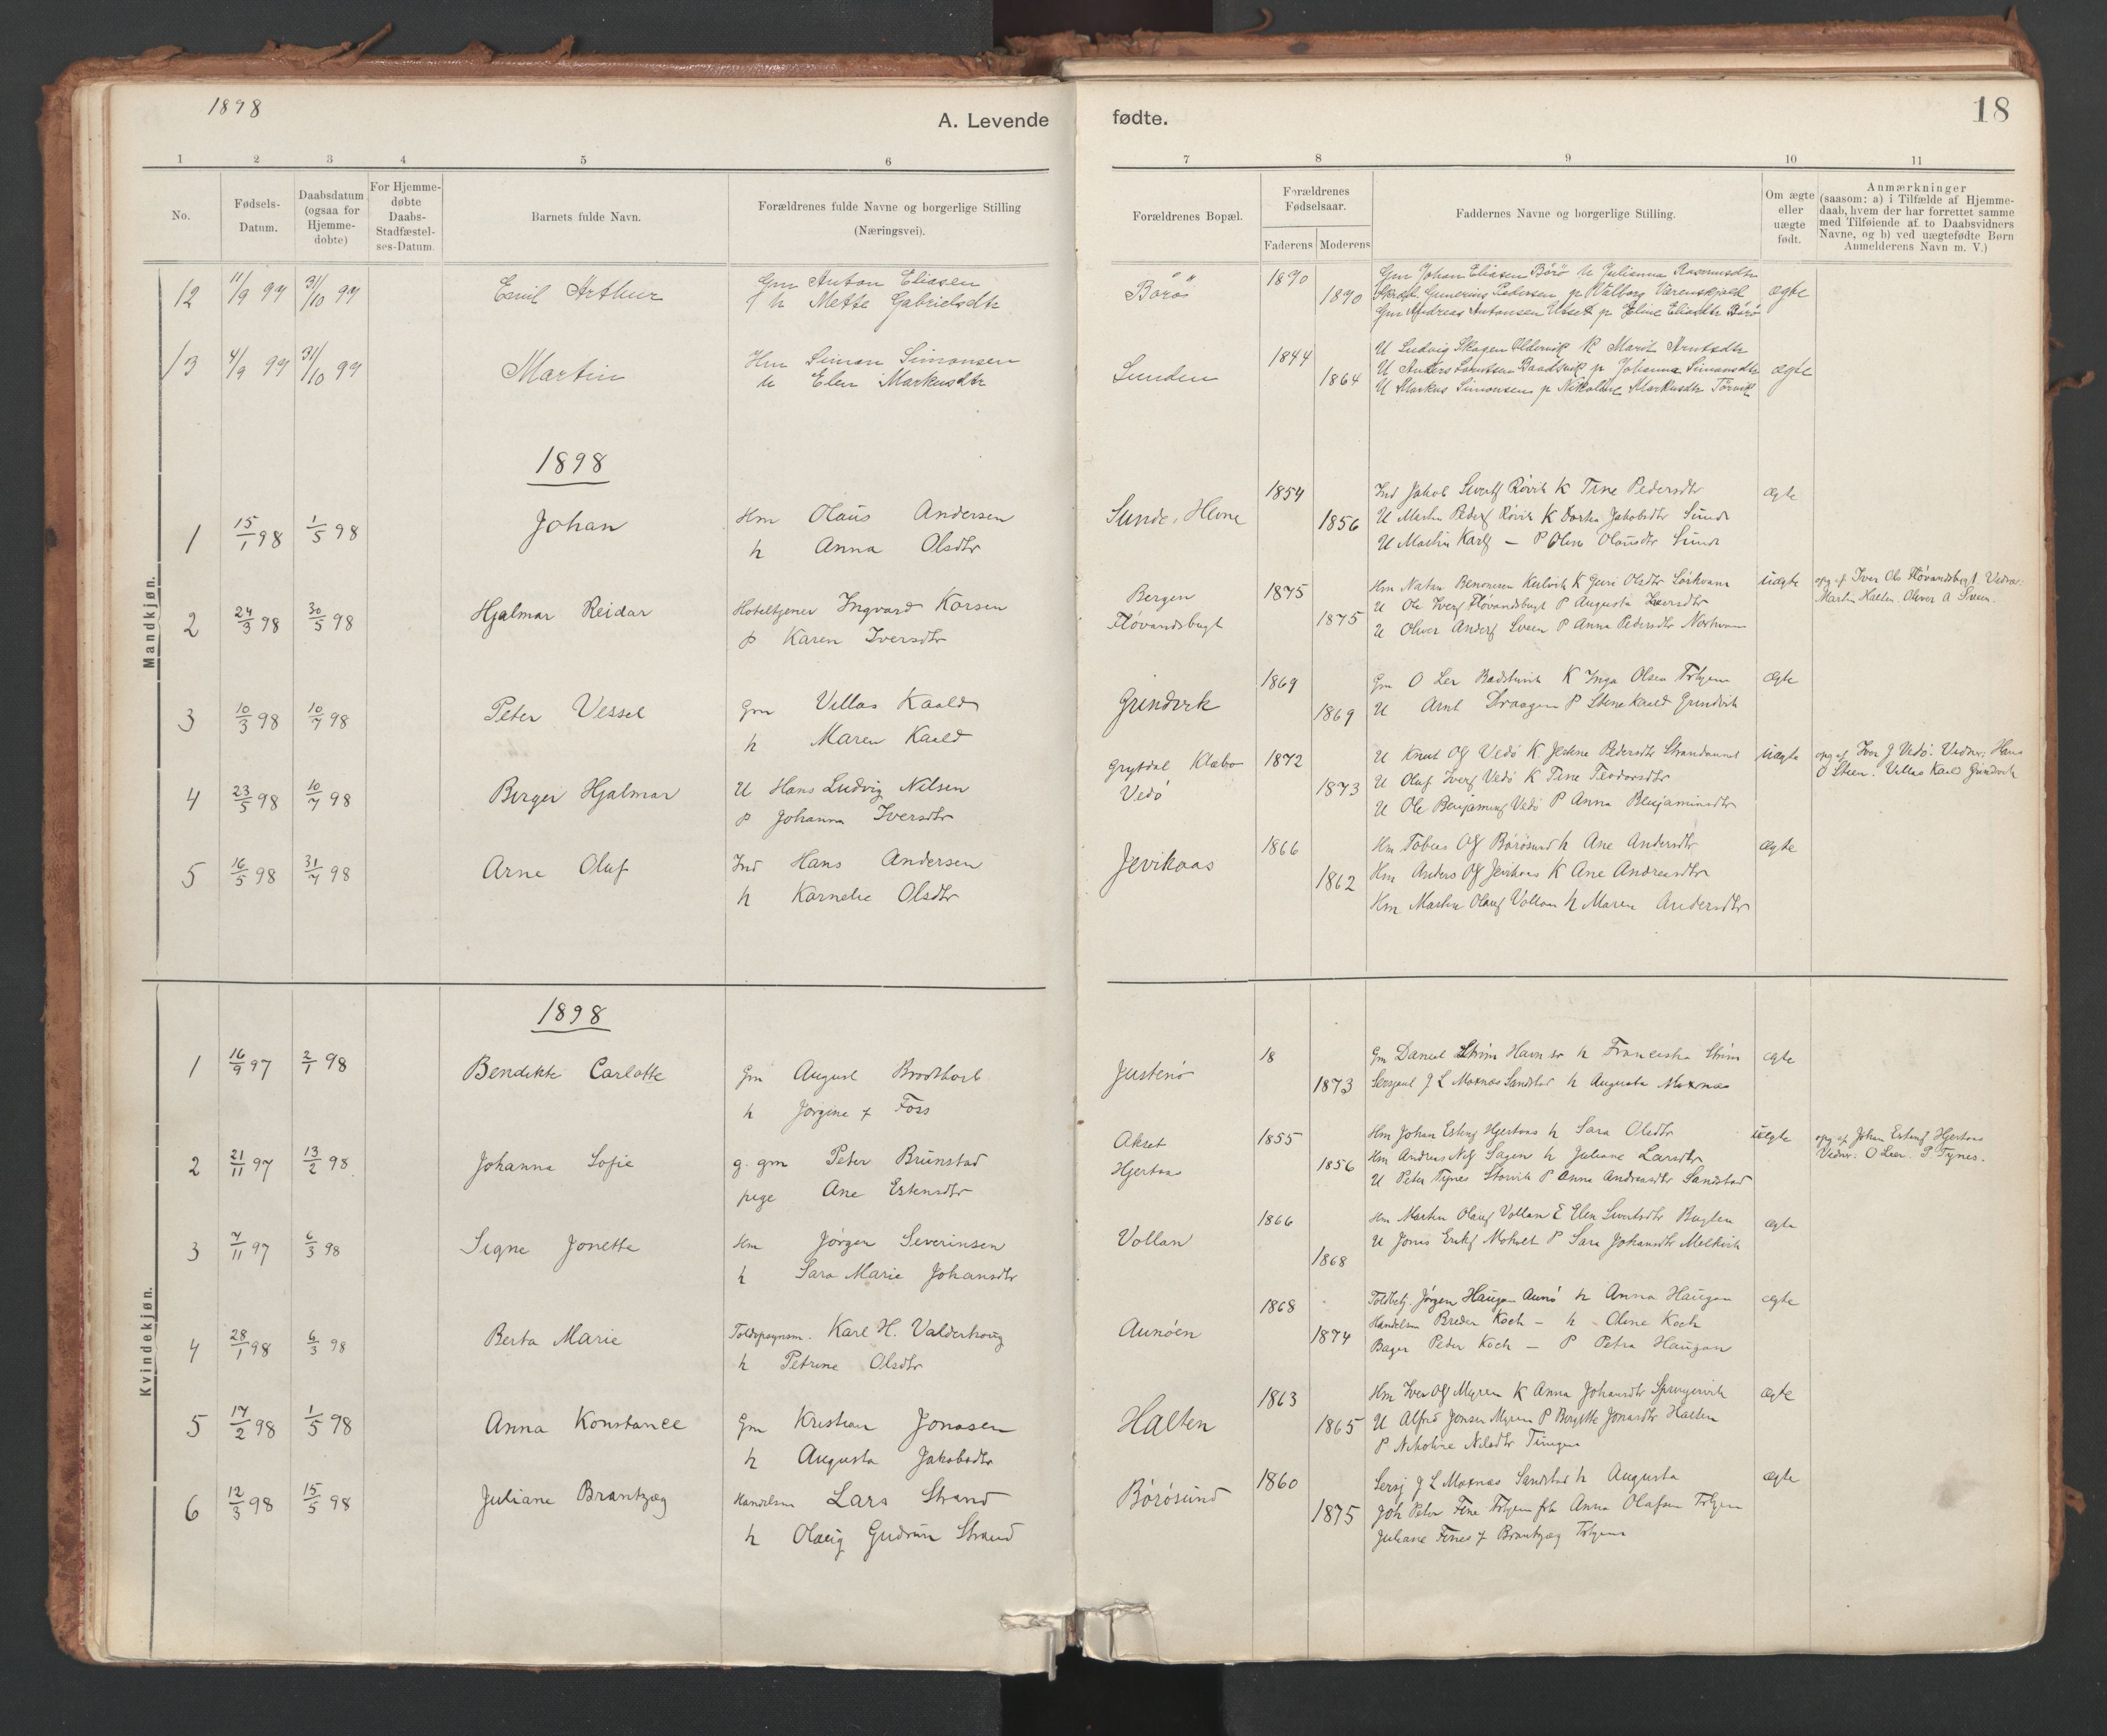 1898
A. Levende
fødte.
18
1 2 3 4 5 6 7 8 9 10 11
No.
Fødsels-
Datum.
Daabsdatum
(ogsaa for
Hjemme-
døbte)
For Hjemme-
døbte
Daabs-
Stadfæstel-
ses-Datum.
Barnets fulde Navn.
Forældrenes fulde Navne og borgerlige Stilling
(Næringsvei).
Forældrenes Bopæl.
Forældrenes
Fødselsaar.
Faderens Moderens
Faddernes Navne og borgerlige Stilling.
Om ægte
eller
uægte
født.
Anmærkninger
(saasom: a) i Tilfælde af Hjemme-
daab, hvem der har forrettet samme
med Tilføiende af to Daabsvidners
Navne, og b) ved uægtefødte Børn
Anmelderens Navn m. V.)
Mandkjøn.
12 11/9 97 31/10 97 Emil Arthur
Gm Anton Eliasen
h Mette Gabrielsdtr
Börö 1870 1870
Gm Johan Eliasen Börö K Julianna Rasmusdtr
Gunerius Pedersen p Valborg Værenskjold
Gm Andreas Antonsen Utset p Eline Eliasdtr Börö
ægte
13 4/9 97 31/10 97 Martin
Hm Simon Simonsen
h Elen Markusdtr
Sunden 1844 1864
U Ludvig Skagen Oldervik K Marit Arntsdtr
U Anders Baadsvik p Johanna Simonsdtr
U Markus Simonsen p Nikoline Markusdtr Törvik
ægte
1898
1 15/1 98 1/5 98 Johan
Hm Olaus Andersen
h Anna Olsdtr
Sunde, Hevne 1854 1856
Ind Jakob Sivertf Røvik K Trne Pedersdtr
U Martin Pederf Røvik K Dortea Jakobsdtr Sunde
U Martin Karlf — P Oline Olausdtr Sunde
ægte
2 24/3 98 30/5 98 Hjalmar Reidar
Hoteltjener Ingvard Korsen
P Karen Iversdtr
Bergen
Fløvandsbugt
1875 1875
Hm Natan Benonisen Kulvik K Guri Olsdtr
U Ole Iverf Fløvandsbugt P Augusta Iversdtr
U Oliver Anderf Sveen P Anna Pedersdtr
uægte
opg af Iver Ols Fløvandsbugt. Vidner:
Martin Halten. Oliver A Sveen.
3 10/3 98 10/7 98 Peter Vessel
Gm Villas Kaald
h Maren Kaald
Grindvik 1869 1869
Gm O Ler Badstuvik K Inga Olsen
U Arnt Draagen P Stene Kaald Grindvik
ægte
4 23/5 98 10/7 98 Birger Hjalmar
U Hans Ludvig Nilsen
P Johanna Iversdtr
Grytdal Klæbo
Vedø
1872 1873
U Knut Olf Vedø K Jestine Pedersdtr
U Oluf Iverf Vedø K Tine Teodorsdtr
U Ole Benjaminf Vedø P Anna Benjaminsdtr
uægte
opg af Iver J Vedø. Vidner: Hans
O Steen. Villas Kaald Grindvik
5 16/5 98 31/7 98 Arne Oluf
Ind Hans Andersen
h Karnelie Olsdtr
Jevikaas 1866 1862
Hm Tobias Olf Börösund h Ane Andersdtr
Hm Anders Olf Jevikaas K Ane Andreasdtr
Hm Martin Olauf Vollan h Maren Andersdtr
ægte
Kvindekjøn.
1898
1 16/9 97 2/1 98 Bendikte Carlotte
Gm August Brodtkorb
h Jørgine f Foss
Justenø 18 1873
Gm Daniel Strøm Havnsø h Franciska Strøm
Sersjant J L Moxnas Sandstad h Augusta Moxnas
ægte
2 21/11 97 13/2 98. Johanna Sofie
g. gm Peter Brunstad
pige Ane Estensdtr
Akset
Hjertaas
1855 1856
Hm Johan Estenf Hjertaas h Sara Olsdtr
Hm Andreas Nilf Sagen h Juliane Larsdtr
U Peter Tynes Storvik P Anna Andreasdtr Sandstad
uægte
opg af Johan Estenf Hjertaas
Vidner: O Leer. P Tynes.
3 7/11 97 6/3 98 Signe Jonette
Hm Jørgen Severinsen
h Sara Marie Johansdtr
Vollan 1866 1868
Hm Martin Olauf Vollan E Elen Sivertsdtr Bugten
U Jonis Erikf Moholt P Sara Johansdtr Melkvik
ægte
4 28/1 98 6/3 98 Berta Marie
Toldopsynsm. Karl H. Valderhoug
h Petrine Olsdtr
Aunøen 1868 1874
Toldbetj. Jørgen Haugan Aunø h Anna Haugan
Handelsm Breder Koch — h Oline Koch
Bager Peder Koch — P Petra Haugan
ægte
5 17/2 98 1/5 98 Anna Konstance
Gm Kristian Jonasen
h Augusta Jakobsdtr
Halten 1863 1865
Hm Iver Olf Myren K Anna Johansdtr Springervik
U Alfred Jonsen Myren P Bergitte Jonasdtr Halten
P Nikoline Nilsdtr Tungen
ægte
6 12/3 98 15/5 98 Juliane Brantzæg
Handelsm Lars Strand
h Olaug Gudrun Strand
Börösund 1860 1875
Sersj J L Moxnas Sandstad h Augusta
Joh Peter Fine frk Anna Olafsen
Juliane Fines f Brantzæg
ægte